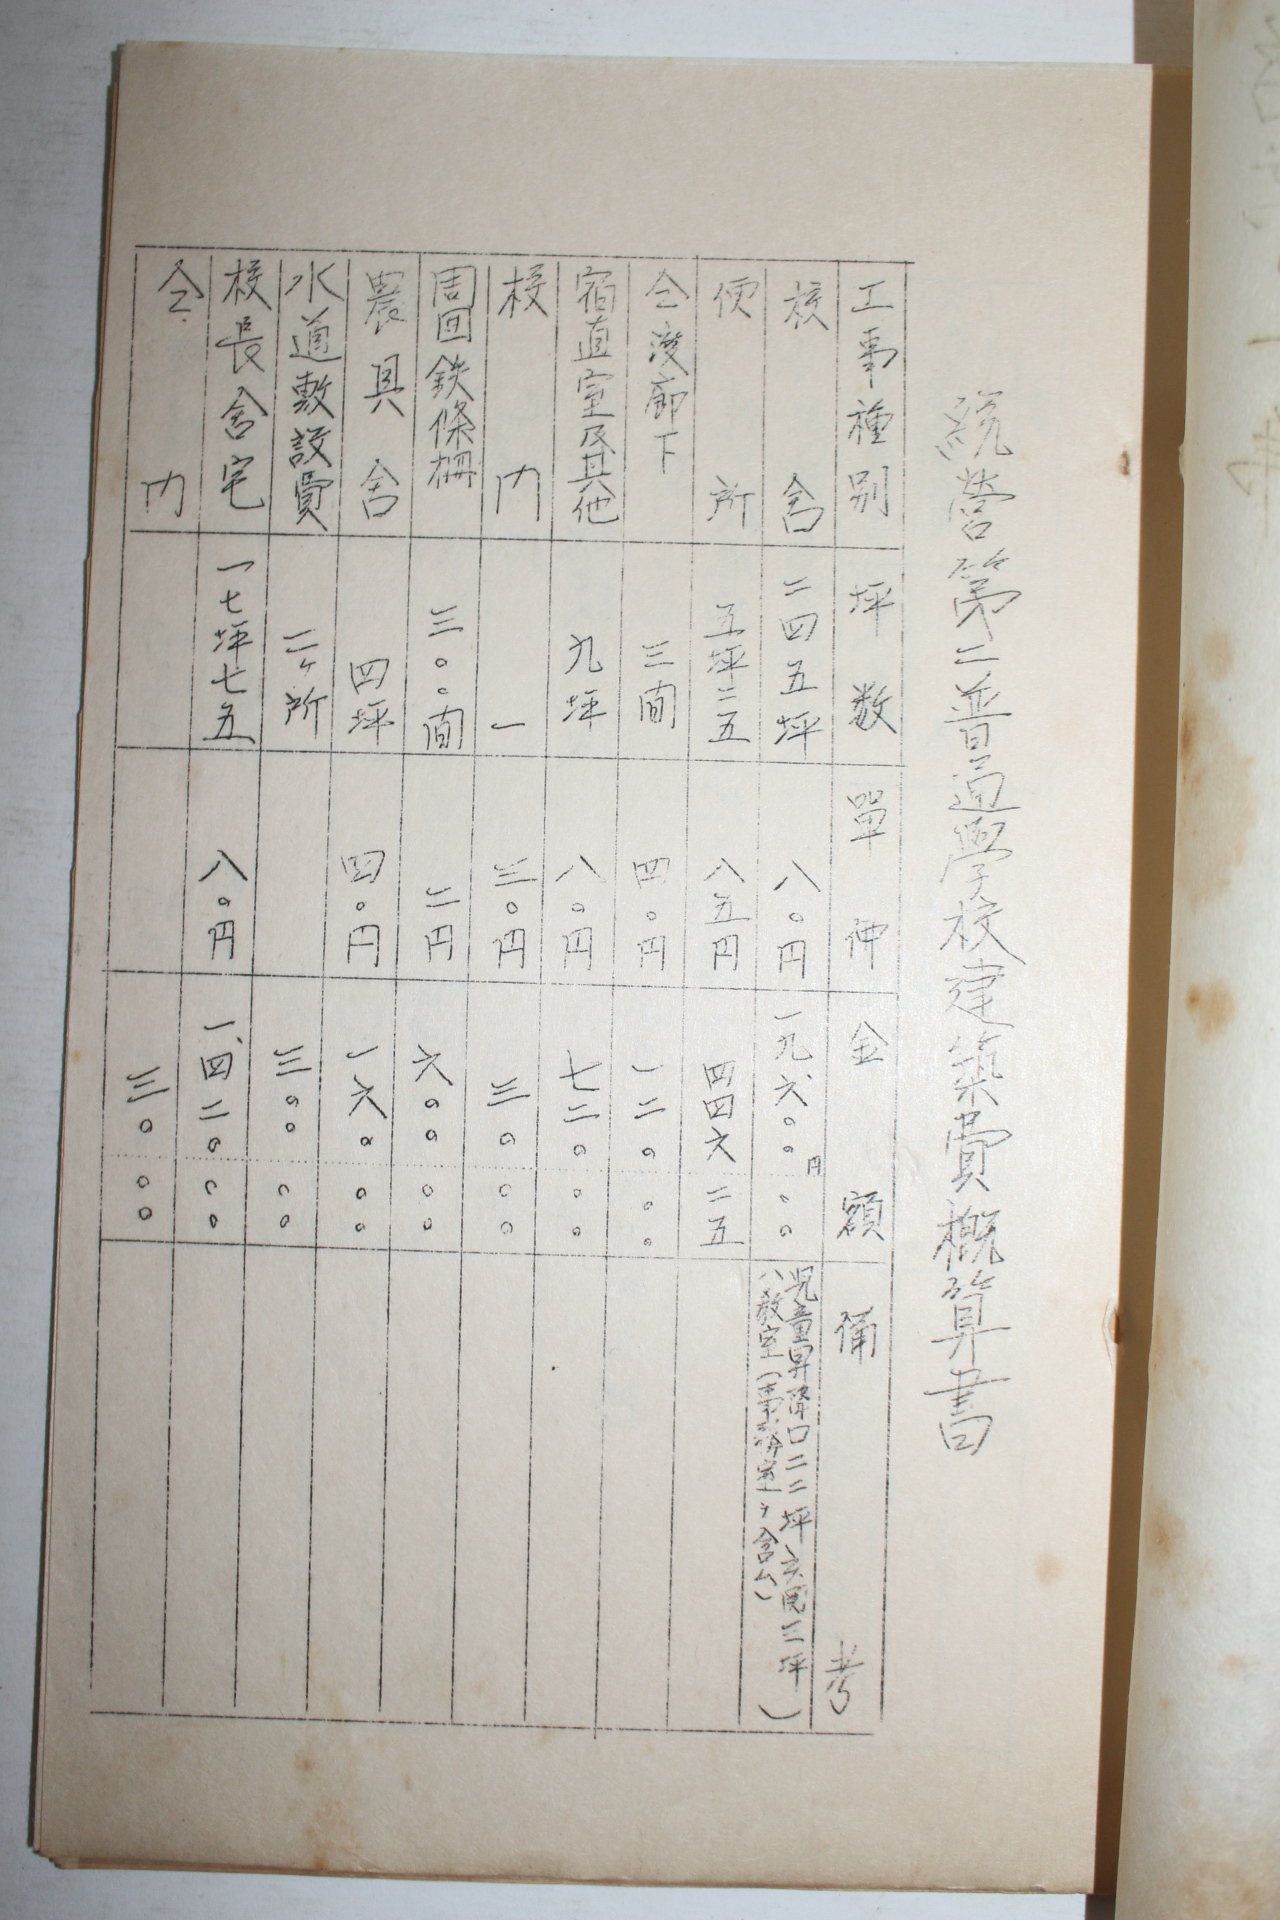 統營第二普通學校建築費概算書
工事種別 坪数 單価 金額 備考
校舍 二四五坪 八〇円 一九、六〇〇円〇〇 児童昇降口二二坪 玄関三坪 八教室(裁縫室ヲ含ム)
便所 五坪二五 八五円 四四六 二五
仝渡廊下 三間 四〇円 一二〇 〇〇
宿直室及其他 九坪 八〇円 七二〇 〇〇
校門 一 三〇円 三〇 〇〇
周囲鉄條柵 三〇〇間 二円 六〇〇 〇〇
農具舍 四坪 四〇円 一六〇 〇〇
水道敷設費 二ヶ所 三〇〇 〇〇
校長舍宅 一七坪七五 八〇円 一、四二〇 〇〇
仝門 三〇 〇〇